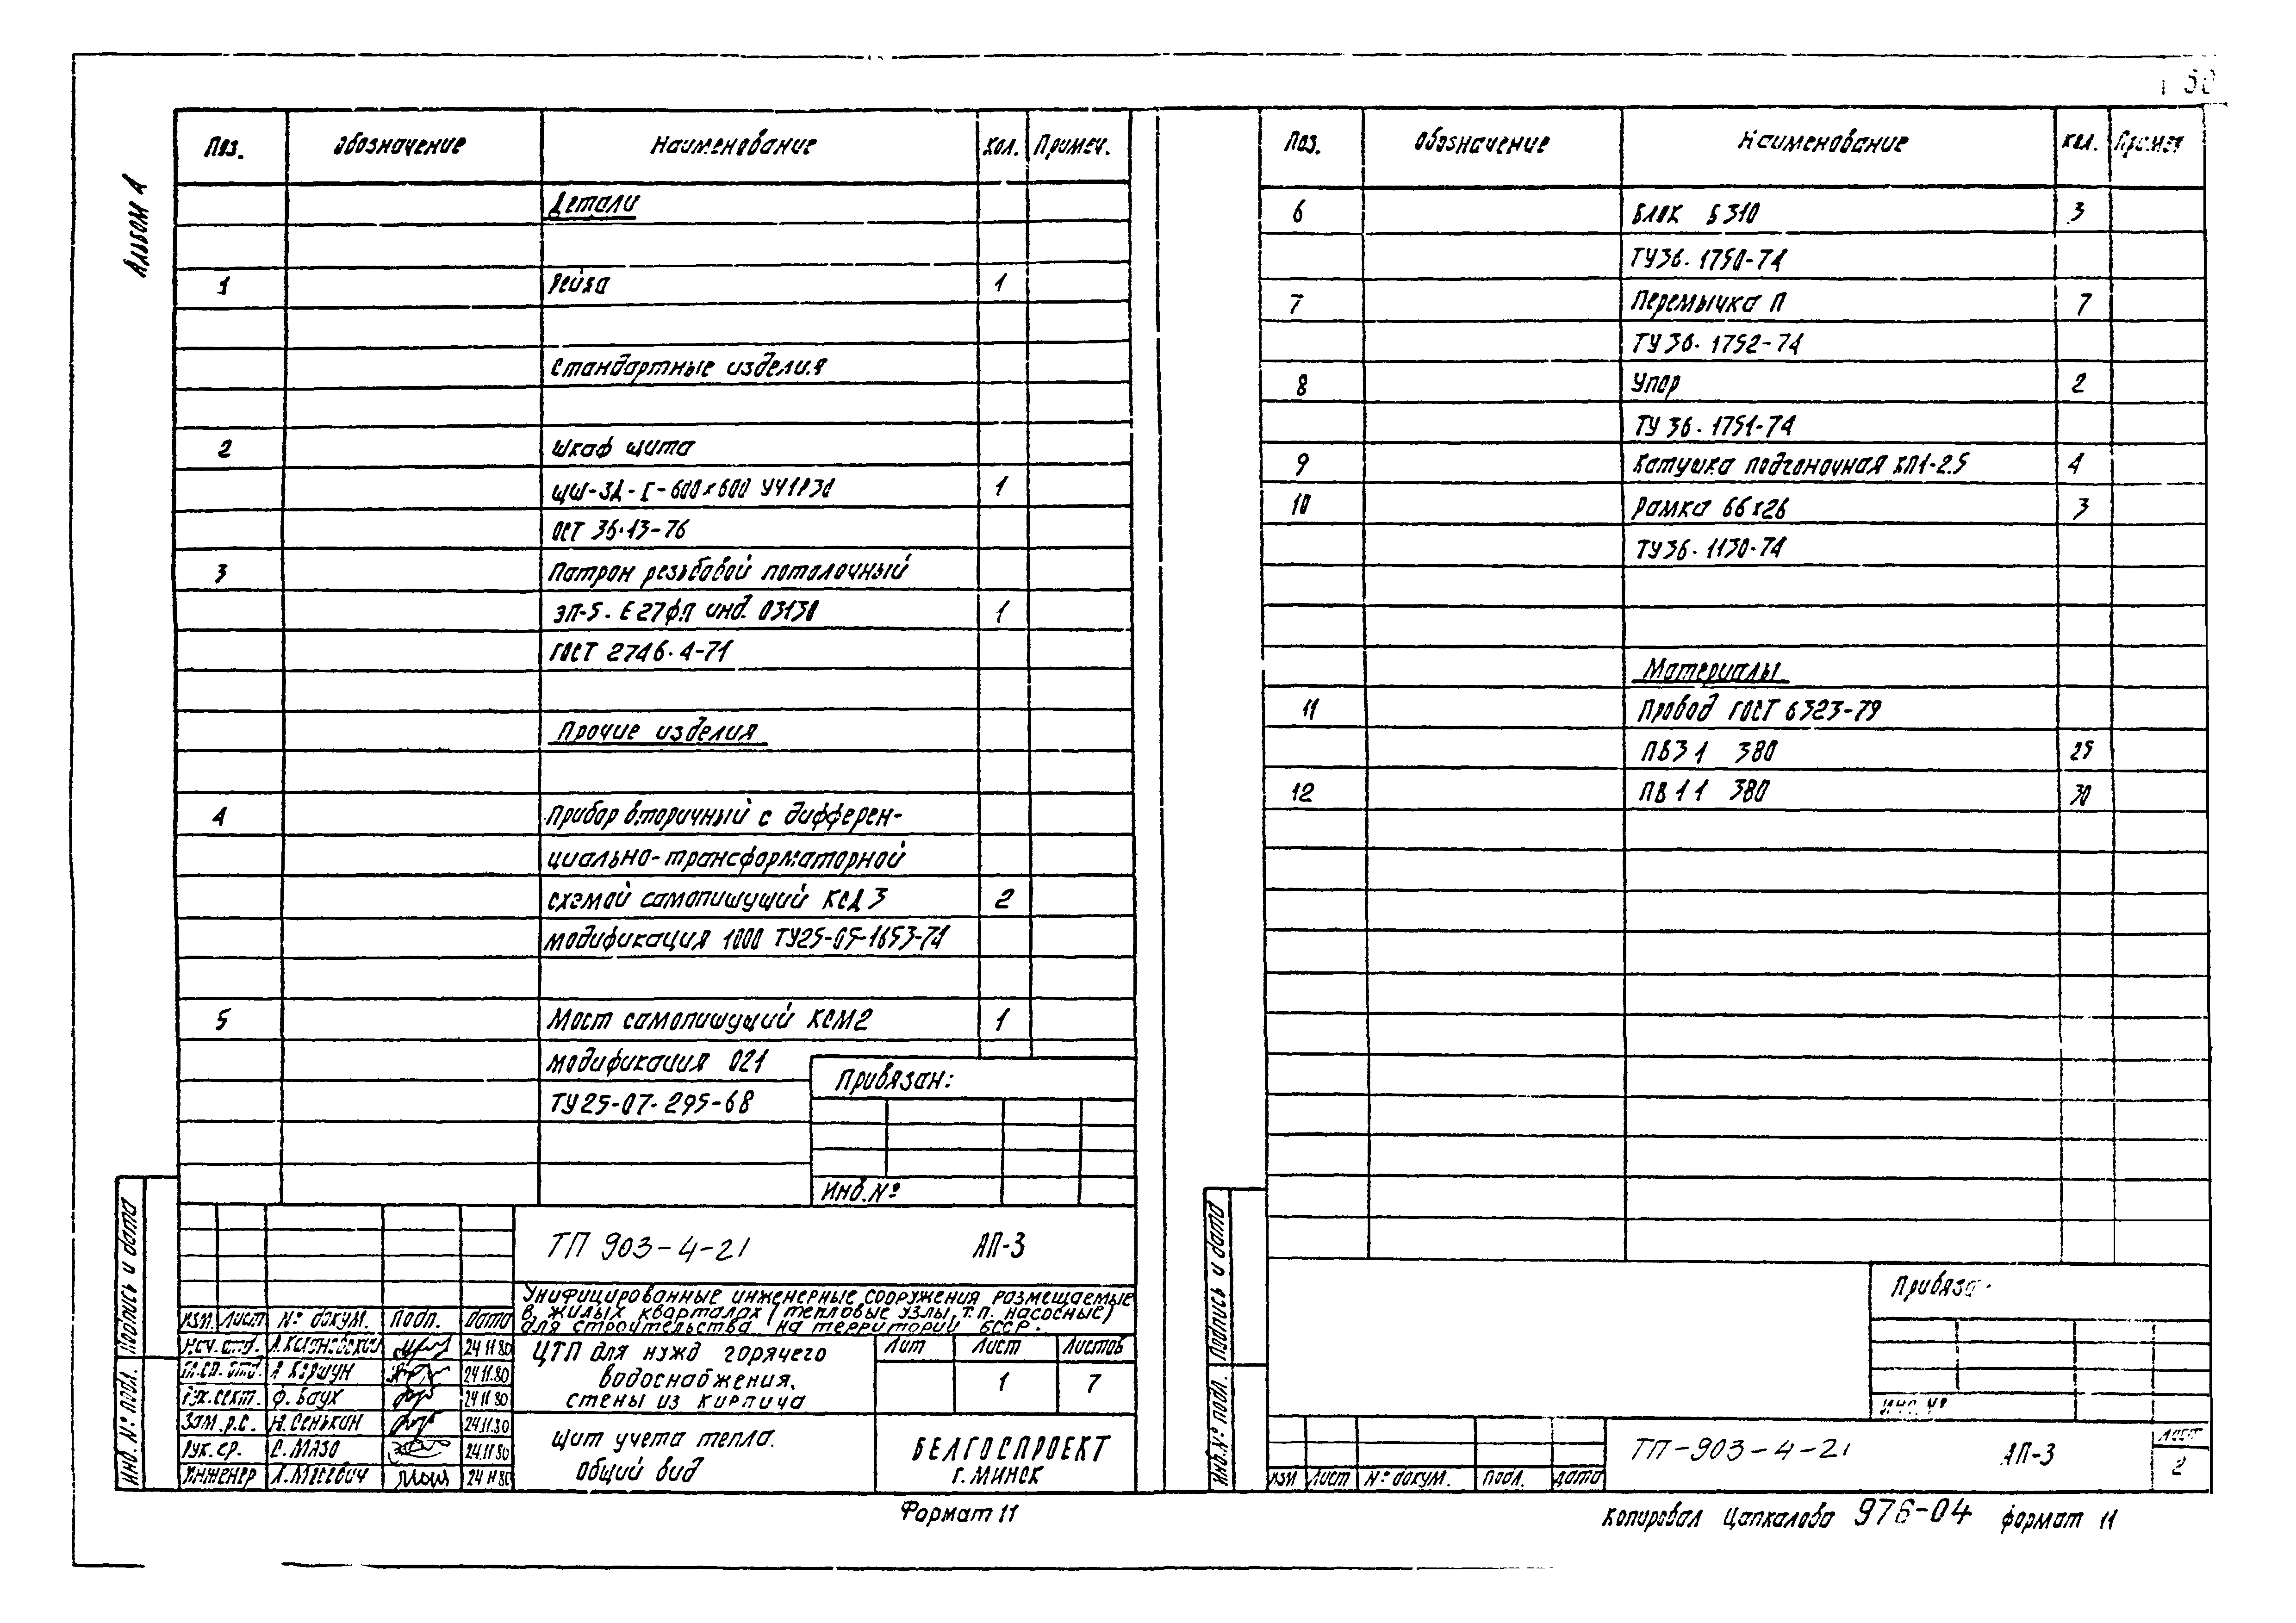 50
Альбом А
Поз. Обозначение Наименование Кол. Примеч.
Детали
1 Рейка 1
Стандартные изделия
2 Шкаф щита
ЩШ-ЗД-I-600х600 УЧ1Р30 1
ОСТ 36.13-76
3 Патрон резьбовой потолочный
ЭП-5. Е27фп инд. 03130 1
ГОСТ 2746.4-71
Прочие изделия
4 Прибор вторичный с дифферен-
циально-трансформаторной
схемой самопишущий КСД3 2
модификация 1000 ТУ25-05-1653-74
5 Мост самопишущий КСМ2 1
модификация 021
ТУ25-07.295-68
Привязан:
Инв.№
ТП 903-4-21 АП-3
Унифицированные инженерные сооружения размещаемые
в жилых кварталах (тепловые узлы, т.п. насосные)
для строительства на территории БССР.
Изм. Лист № докум. Подп. Дата
Нач. отд. 24.11.80
Гл.сп. отд. А Коршун 24.11.80
Рук.сект. Ф. Баух 24.11.80
Зам. р.с. Н. Сенькин 24.11.80
Рук. гр. С. Мазо 24.11.80
Инженер Л. Масевич 24.11.80
ЦТП для нужд горячего
водоснабжения.
стены из кирпича
Лит Лист Листов
1 7
Щит учета тепла.
Общий вид
БЕЛГОСПРОЕКТ
г. Минск
Инв. № подл. Подпись и дата
Формат 11
Поз. Обозначение Наименование Кол. Примеч
6 Блок Б310 3
ТУ36.1750-74
7 Перемычка П 7
ТУ36.1752-74
8 Упор 2
ТУ 36.1751-74
9 Катушка подгоночная КП1-2.5 4
10 Рамка 66х26 3
ТУ36.1130-74
Материалы
11 Провод ГОСТ 6323-79
ПВ3 1 380 25
12 ПВ 1 1 380 30
Привяза
Инв. №
Инв.№ подл. Подпись и дата
Изм Лист № докум. Подп. Дата
ТП-903-4-21 АП-3
Лист
2
Копировал Цапкалова 976-04 формат 11